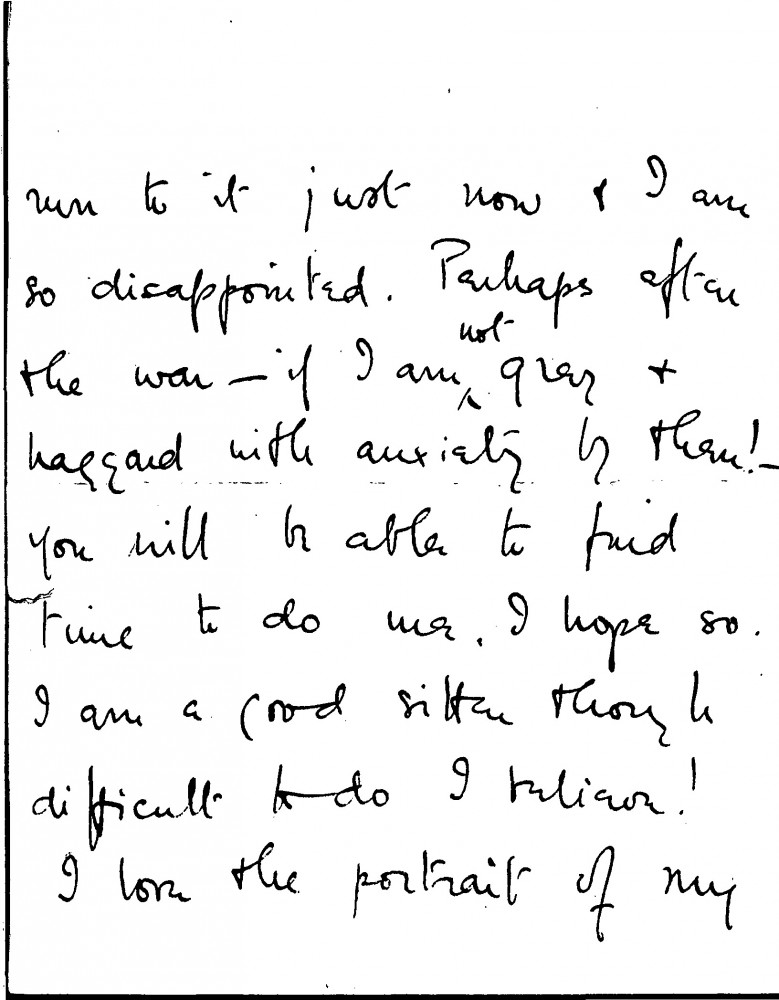 run to it just now & I am
so disappointed. Perhaps after
the war – if I am not grey +
haggard with anxiety by then! –
you will be able to find
time to do me. I hope so.
I am a good sitter though
difficult to do I believe!
I love the portrait of my